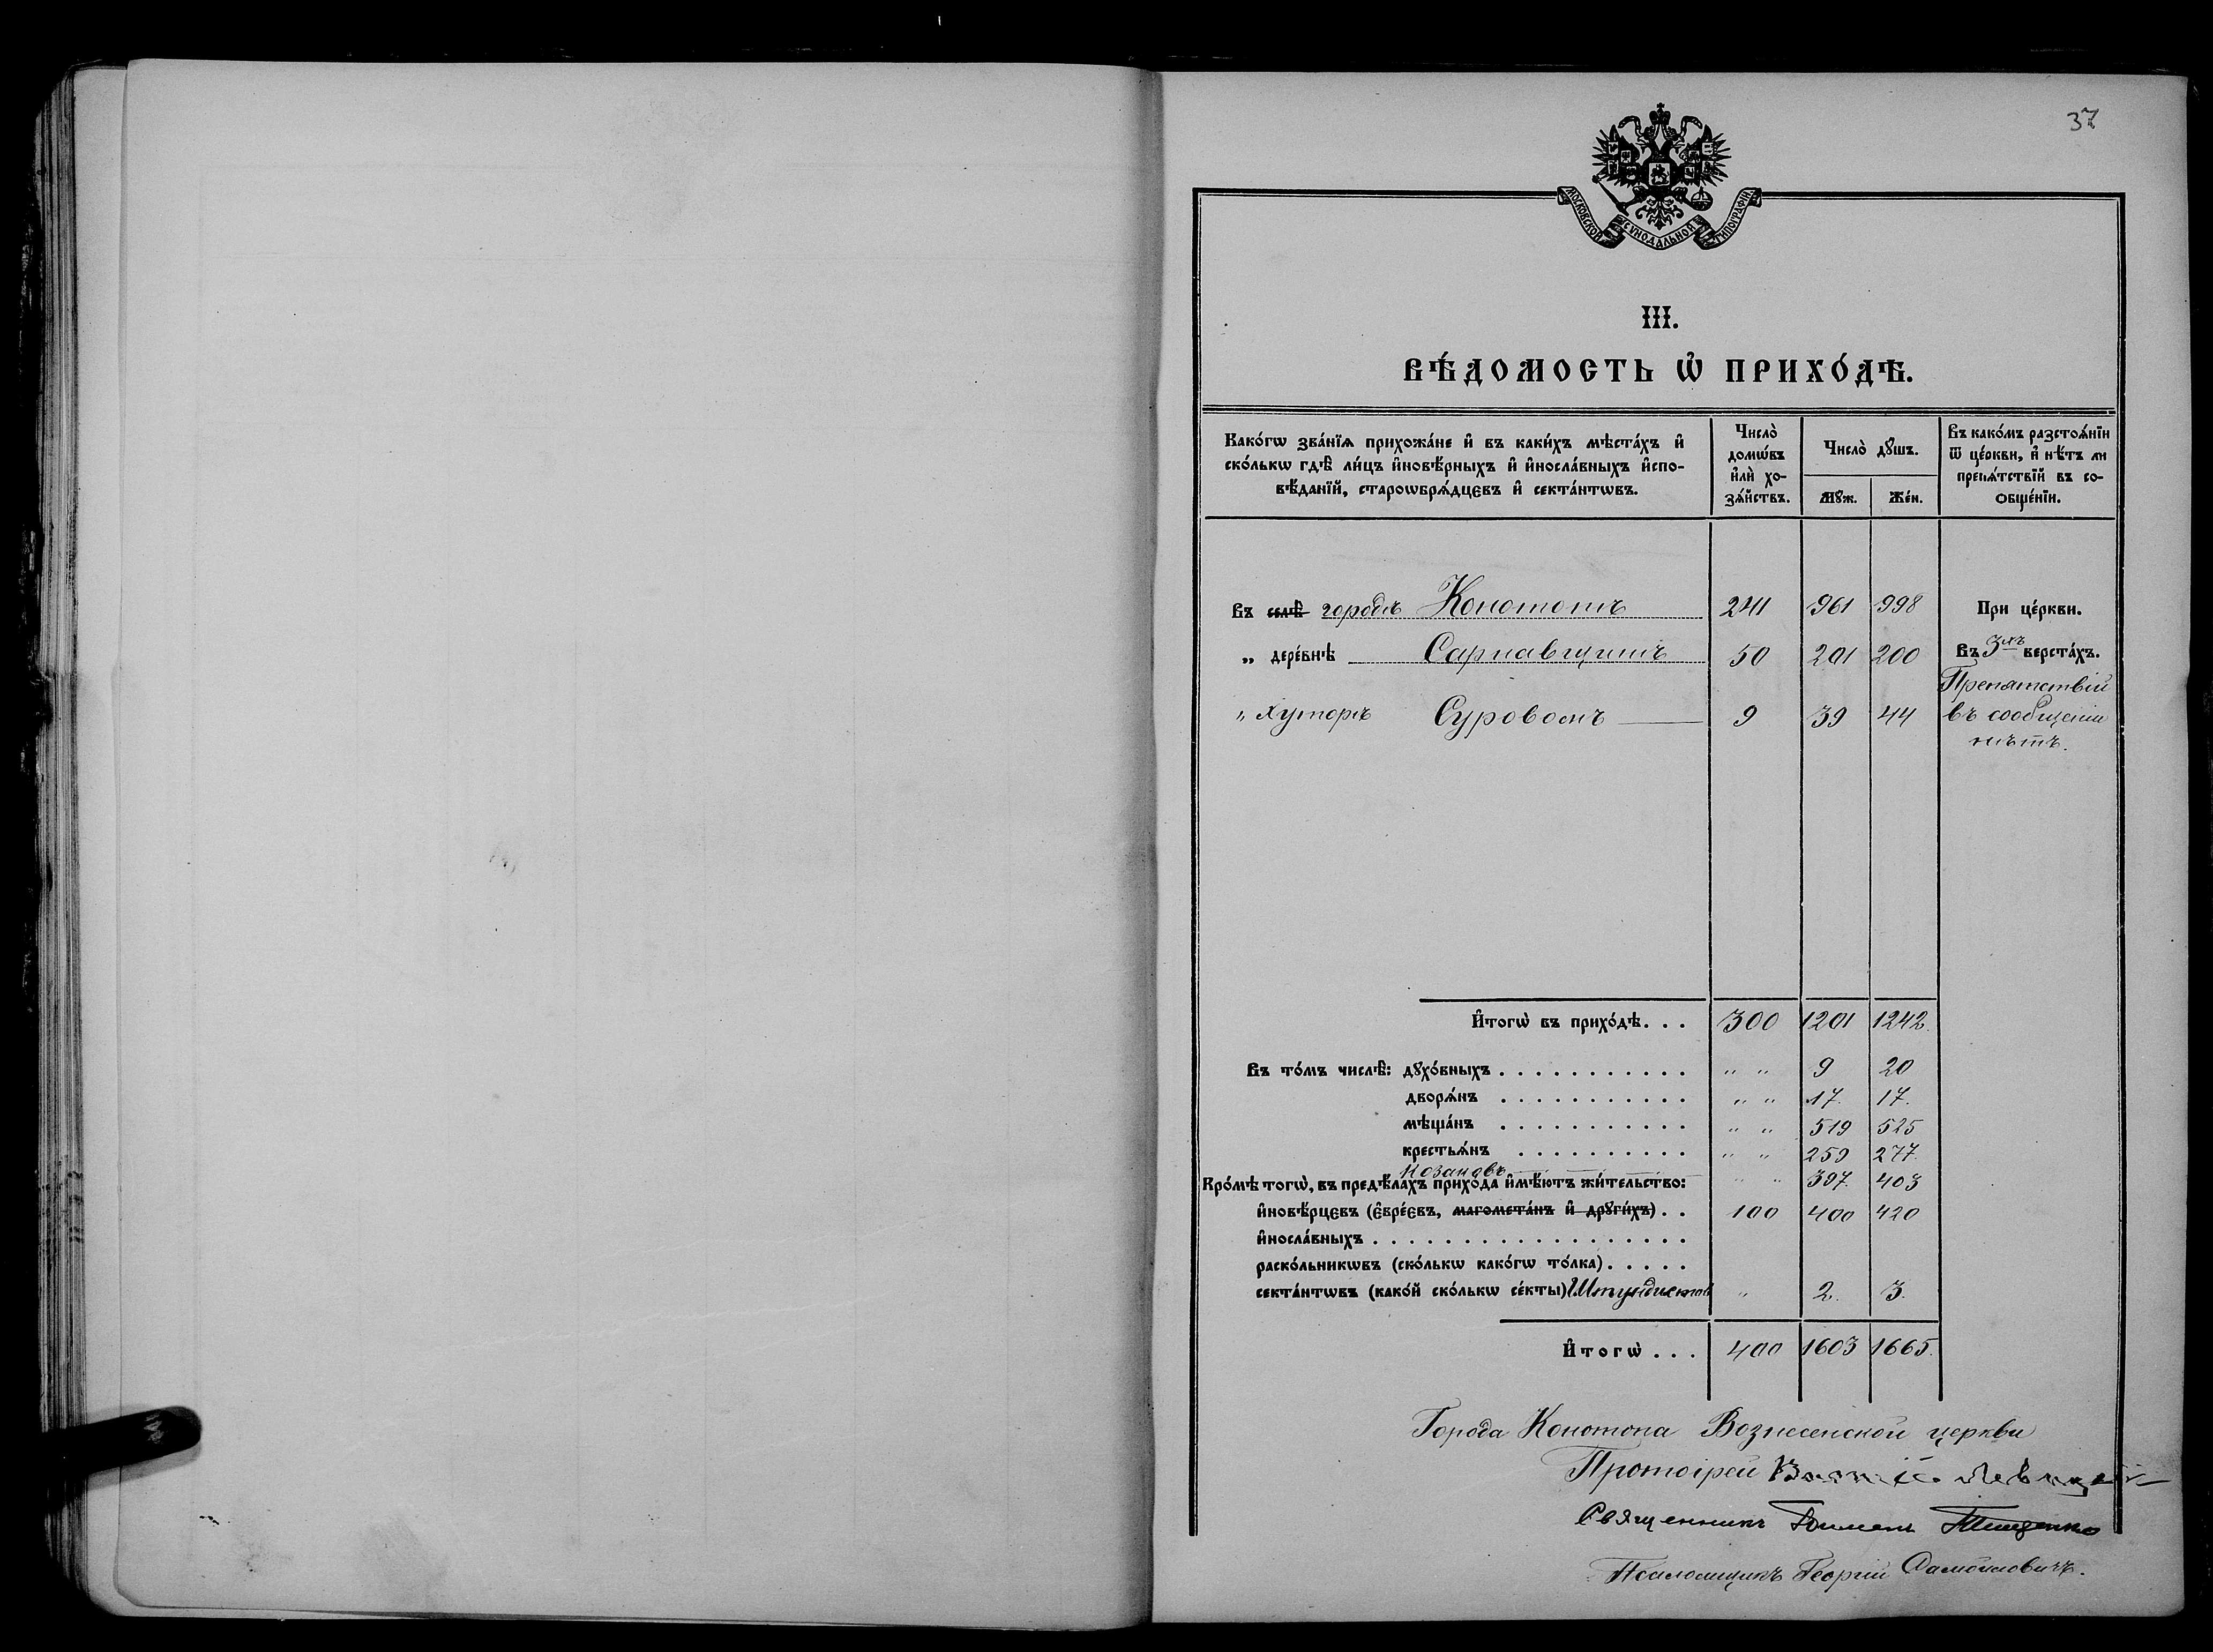 37
МОСКОВСКОЙ СѴНОДАЛЬНОЙ ТИПОГРАФІИ
III.
ВѢ́ДОМОСТЬ Ѡ҆ ПРИХО́ДѢ.
Како́гѡ зва́нїѧ прихожа́не и҆ въ каки́хъ мѣста́хъ и҆
ско́лькѡ гдѣ̀ ли́цъ и҆новѣ́рныхъ и҆ и҆носла́вныхъ и҆спо-
вѣ́данїй, староѡбрѧ́дцєвъ и҆ секта́нтѡвъ.
Число̀
домѡ́въ
и҆лѝ хо-
зѧ́йствъ.
Число̀ дꙋ́шъ.
Мꙋ́ж.
Же́н.
Въ како́мъ разстоѧ́нїи
ѿ це́ркви, и҆ нѣ́тъ ли
препѧ́тствїй въ со-
ѻбще́нїи.
Въ селѣ̀ городѣ Конотопѣ 241 961 998 При це́ркви.
„ дере́внѣ Сарнавщинѣ 50 201 200 Въ 3хъ верста́хъ.
Препятствій
„ хуторѣ Суровомъ 9 39 44 въ сообщеніи
нѣтъ.
И҆тогѡ̀ въ прихо́дѣ. . . 300 1201 1242.
Въ то́мъ числѣ̀: дꙋхо́вныхъ . . . . . . . . . . . „ „ 9 20
дворѧ́нъ . . . . . . . . . . . „ „ 17. 17.
мѣща́нъ . . . . . . . . . . . „ „ 519 525
крестьѧ́нъ . . . . . . . . . . „ „ 259 277.
Козаковъ „ „ 397. 403
Кро́мѣ тогѡ̀, въ предѣ́лахъ прихо́да и҆мѣ́ютъ жи́тельство:
и҆новѣ́рцєвъ (є҆вре́євъ, магомета́нъ и҆ дрꙋги́хъ) . . 100 400 420
и҆носла́вныхъ . . . . . . . . . . . . . . . . . .
раско́льникѡвъ (ско́лькѡ како́гѡ то́лка) . . . . .
секта́нтѡвъ (како́й ско́лькѡ се́кты) Штундистовъ „ 2. 3.
И҆тогѡ̀ . . . 400 1603 1665.
Города Конотопа Вознесенской церкви
Протоіерей Левицкій
Священникъ Пименъ Тищенко
Псаломщикъ Георгій Самойловичъ.